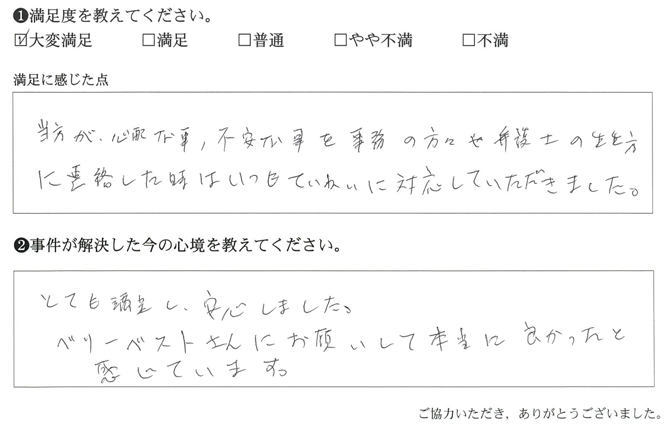 ❶満足度を教えてください。
☑大変満足 □満足 □普通 □やや不満 □不満
満足に感じた点
当方が、心配な事,不安な事を事務の方々や弁護士の先生方
に連絡した時はいつもていねいに対応していただきました。
❷事件が解決した今の心境を教えてください。
とても満足し、安心しました。
ベリーベストさんにお願いして本当に良かったと
感じています。
ご協力いただき、ありがとうございました。